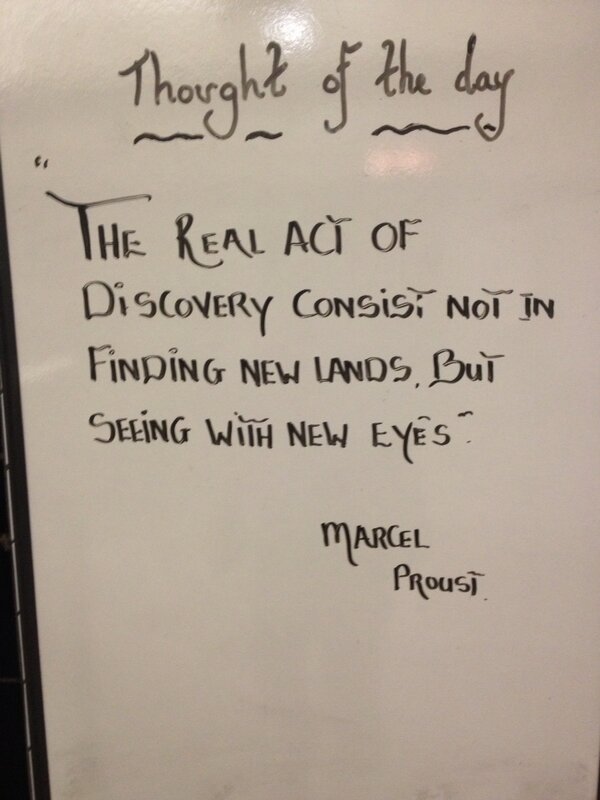 Thought of the day
"
THE REAL ACT OF
DISCOVERY CONSIST NOT IN
FINDING NEW LANDS, BUT
SEEING WITH NEW EYES".
MARCEL
PROUST.